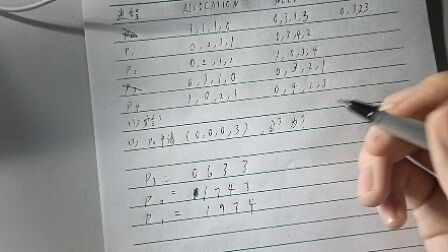 进程 ALLOCATION
P₀ 1,1,1,0 0,3,3,3 0,323
P₁ 0,2,3,1 0,3,4,2
P₂ 0,2,1,2 1,0,3,4
P₃ 6,3,1,0 0,3,2,1
P₄ 1,0,2,1 0,4,2,3
(1) 安全?
(2) P₀申请 (0,0,0,3)
P₃ = 0 6 3 3
= 1 7 4 3
P₁ = 1 9 7 4